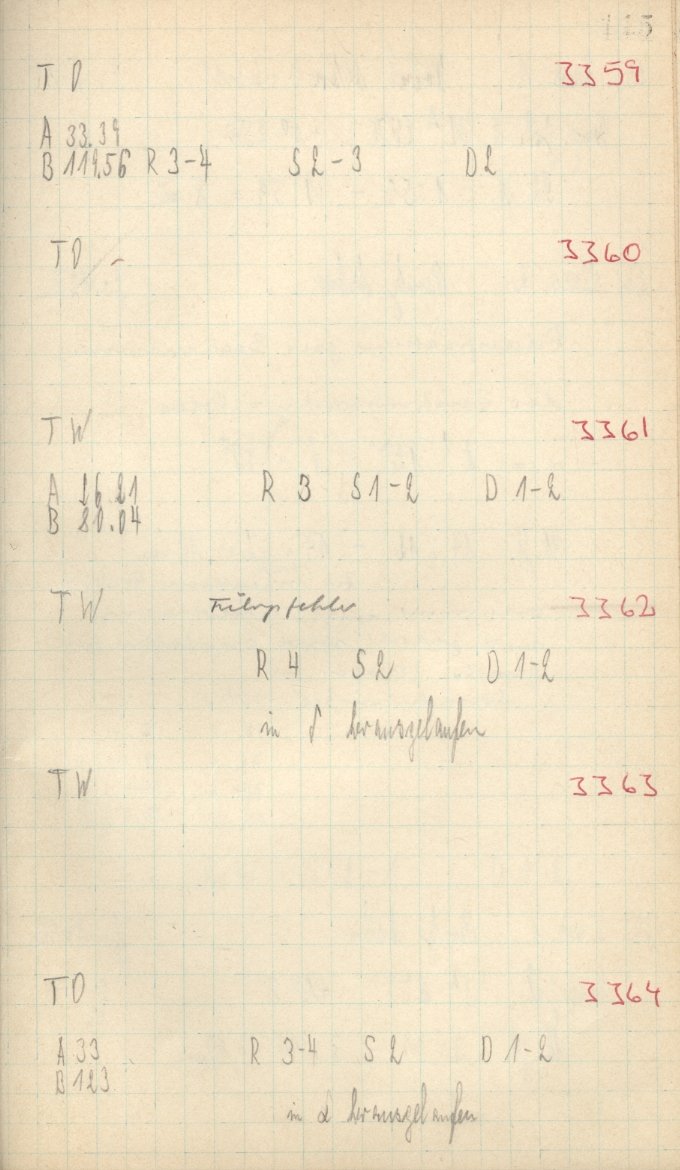 TD 3359
A 33.39
B 119.56 R 3-4 S 2-3 D2
TD 3360
TW 3361
A 26.21 R 3 S 1-2 D 1-2
B 80.04
TW 3362
R 4 S 2 D 1-2
in δ herausgelaufen
TW 3363
TD 3364
A 33 R 3-4 S 2 D 1-2
B 123
in α herausgelaufen